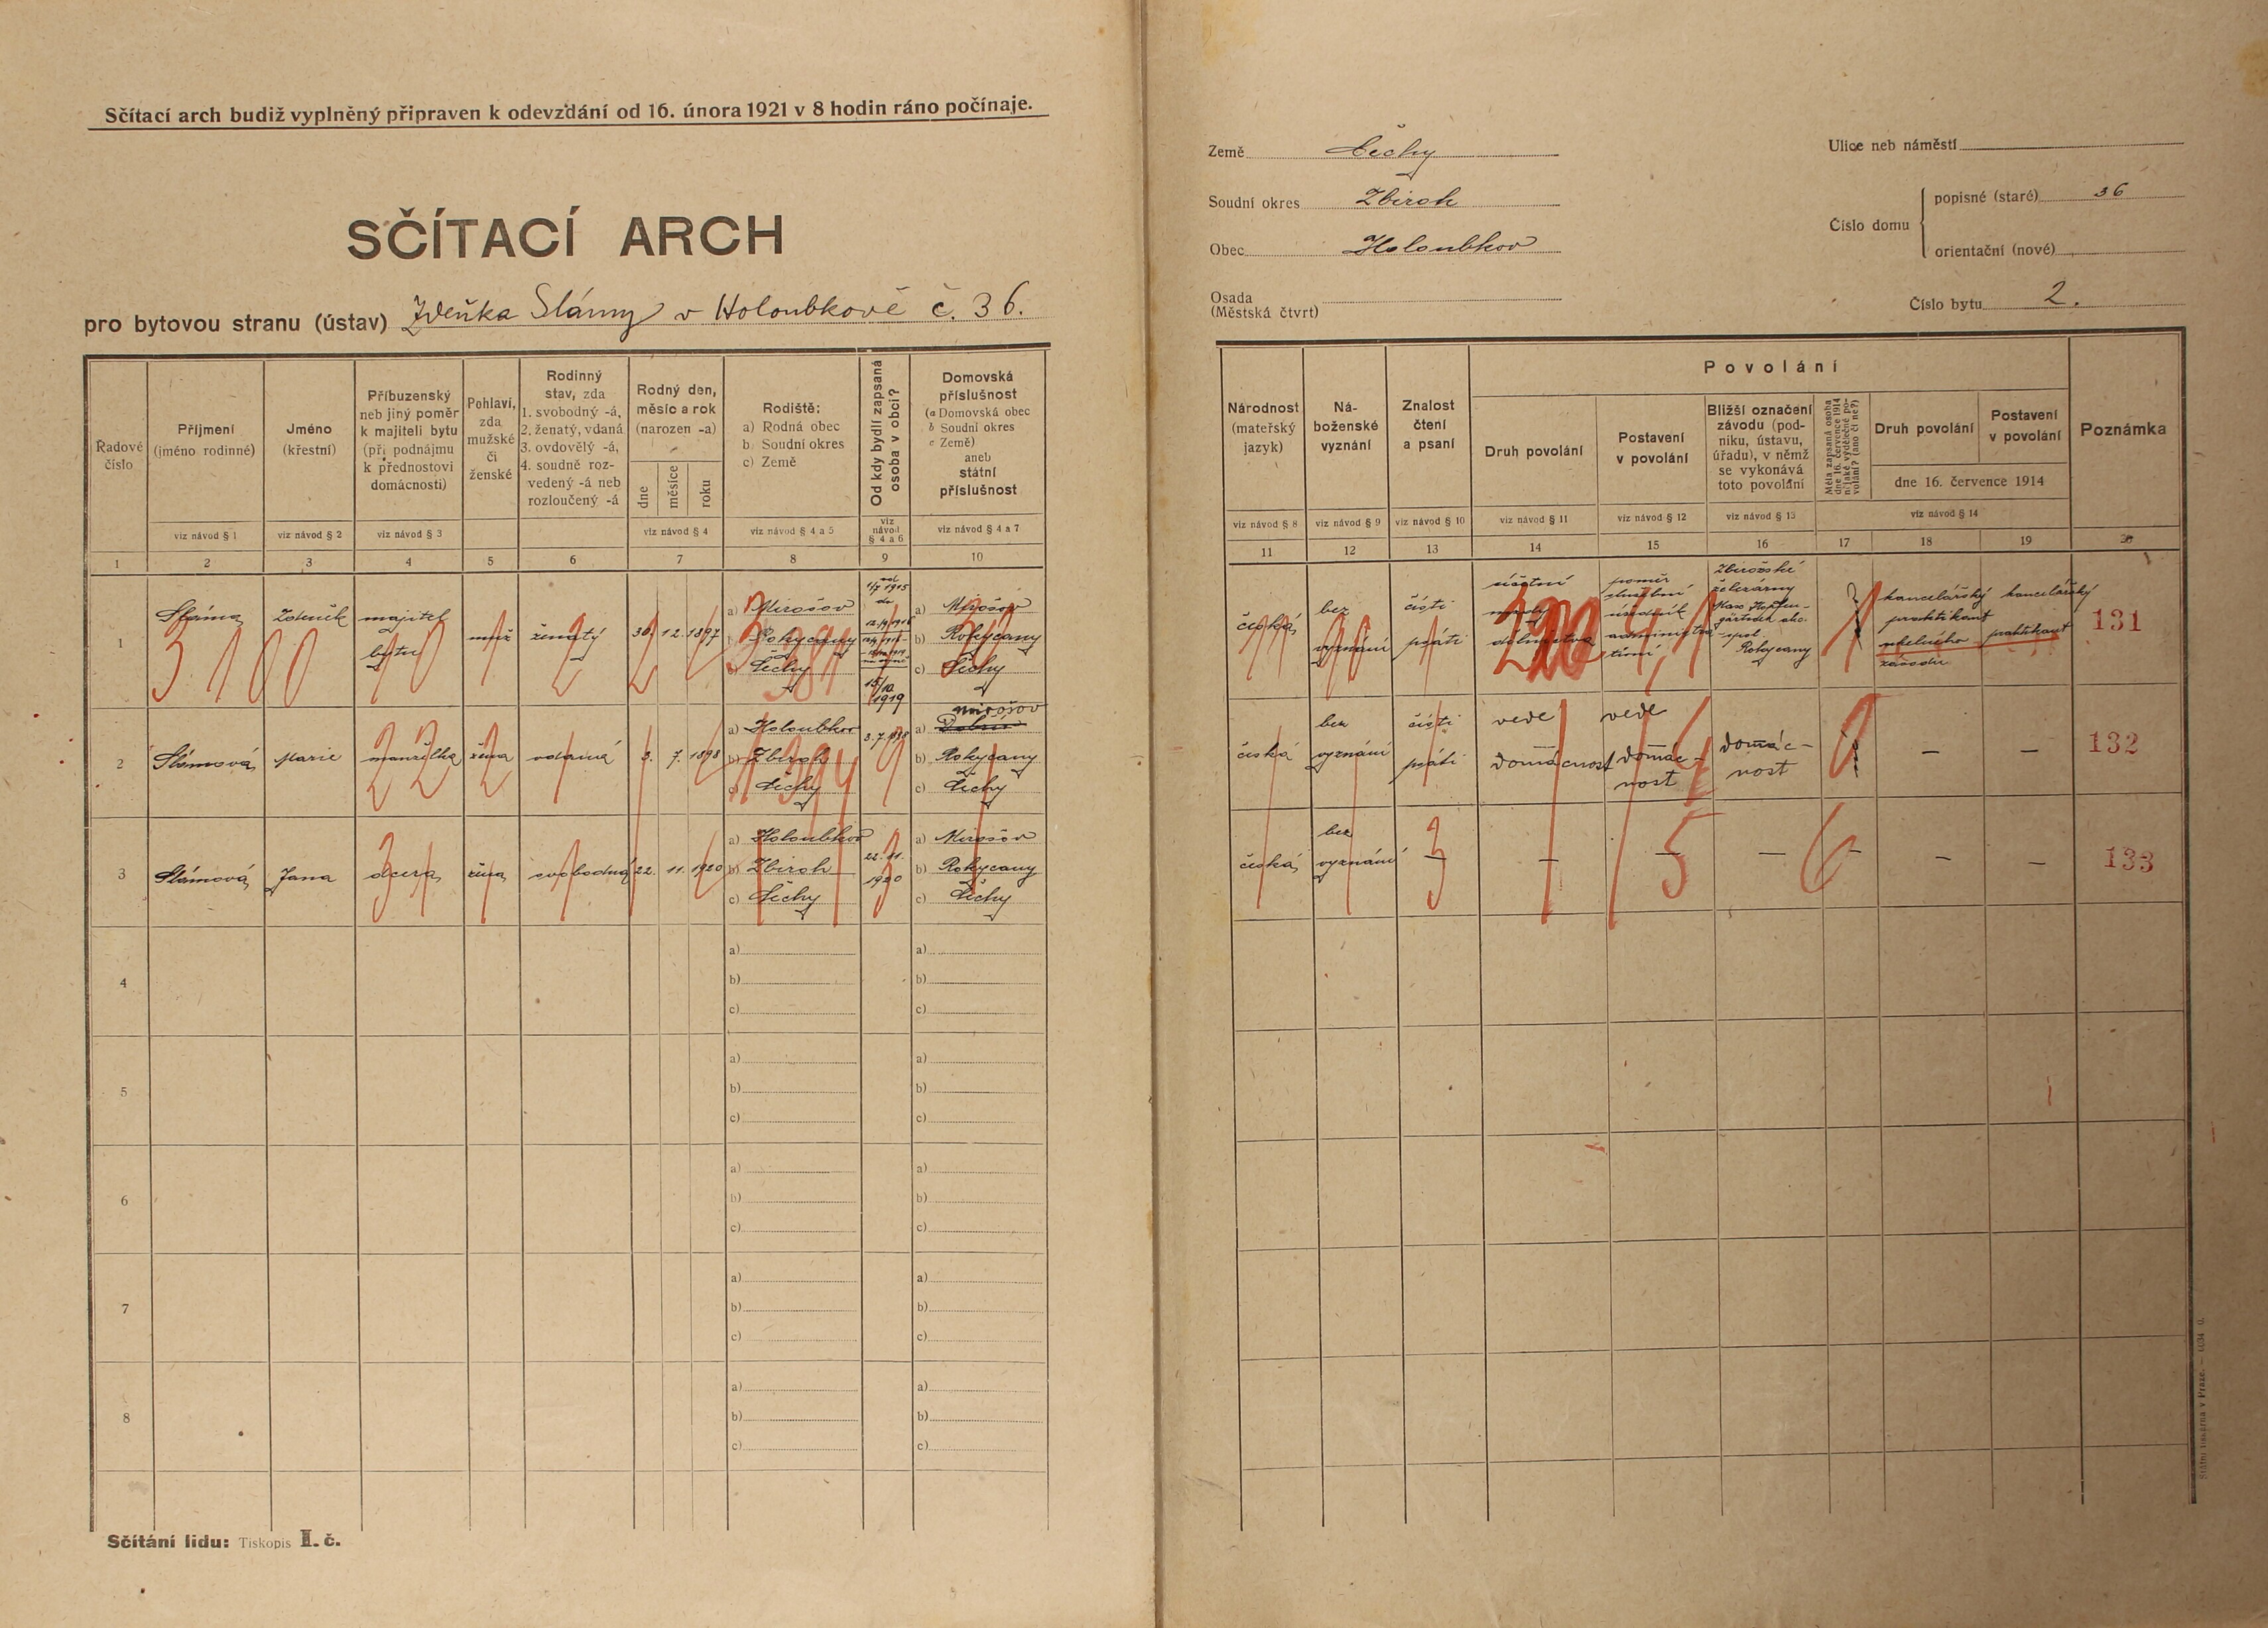 Sčítací arch budiž vyplněný připraven k odevzdání od 16. února 1921 v 8 hodin ráno počínaje.
SČÍTACÍ ARCH
pro bytovou stranu (ústav) Zdeňka Slámy v Holoubkově č. 36.
Země Čechy
Soudní okres Zbiroh
Obec Holoubkov
Osada
(Městská čtvrt)
Ulice neb náměstí
Číslo domu
popisné (staré) 36
orientační (nové)
Číslo bytu 2.
Řadové číslo
Příjmení (jméno rodinné)
Jméno (křestní)
Příbuzenský neb jiný poměr k majiteli bytu (při podnájmu k přednostovi domácnosti)
Pohlaví, zda mužské či ženské
Rodinný stav, zda
1. svobodný -á,
2. ženatý, vdaná
3. ovdovělý -á,
4. soudně rozvedený -á neb rozloučený -á
Rodný den, měsíc a rok (narozen -a)
dne měsíce roku
Rodiště:
a) Rodná obec
b) Soudní okres
c) Země
Od kdy bydlí zapsaná osoba v obci?
Domovská příslušnost
(a Domovská obec
b Soudní okres
c Země)
aneb
státní příslušnost
viz návod § 1 viz návod § 2 viz návod § 3 viz návod § 4 viz návod § 4 a 5 viz návod § 4 a 6 viz návod § 4 a 7
1 2 3 4 5 6 7 8 9 10
Národnost (mateřský jazyk)
Náboženské vyznání
Znalost čtení a psaní
Povolání
Druh povolání
Postavení v povolání
Bližší označení závodu (podniku, ústavu, úřadu), v němž se vykonává toto povolání
Měla zapsaná osoba dne 16. července 1914 nějaké výdělečné povolání? (ano či ne?)
Druh povolání
Postavení v povolání
dne 16. července 1914
Poznámka
viz návod § 8 viz návod § 9 viz návod § 10 viz návod § 11 viz návod § 12 viz návod § 13 viz návod § 14
11 12 13 14 15 16 17 18 19 20
1 Sláma Zdeněk majitel bytu muž ženatý 30. 12. 1897
a) Mirošov
b) Rokycany
c) Čechy
15/10 1919
a) Mirošov
b) Rokycany
c) Čechy
česká bez vyznání čísti psáti
účetní
poměr služební úředník
Zbirožské železárny
Rokycany
kancelářský praktikant
závodu
kancelářský praktikant
131
2 Slámová Marie manželka žena vdaná 3. 7. 1898
a) Holoubkov
b) Zbiroh
c) Čechy
3. 7. 1898
mirošov
a) Dobřív
b) Rokycany
c) Čechy
česká bez vyznání čísti psáti
vede domácnost
vede domácnost
domácnost
— —
132
3 Slámová Jana dcera žena svobodná 22. 11. 1920
a) Holoubkov
b) Zbiroh
c) Čechy
22. 11. 1920
a) Mirošov
b) Rokycany
c) Čechy
česká bez vyznání — — — — — — —
133
4
a) a)
b) b)
c) c)
5
a) a)
b) b)
c) c)
6
a) a)
b) b)
c) c)
7
a) a)
b) b)
c) c)
8
a) a)
b) b)
c) c)
Sčítání lidu: Tiskopis I. č.